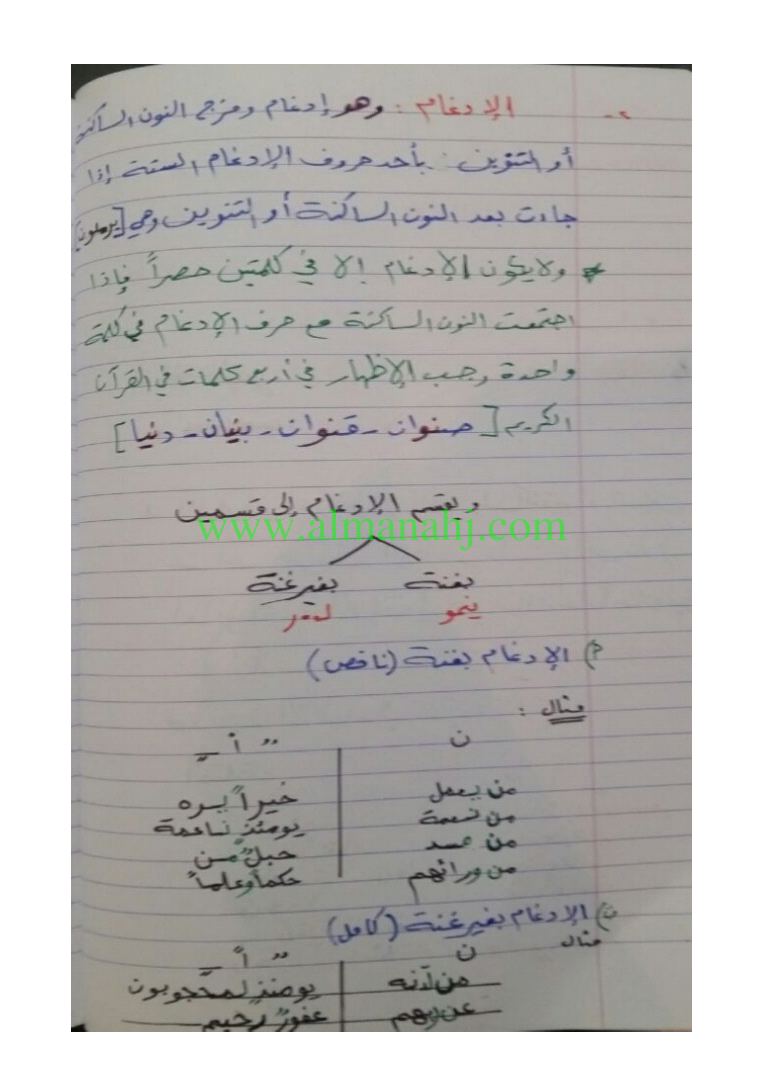 ٢- الإدغام : وهو إدغام ومزج النون الساكنة
أو التنوين بأحد حروف الإدغام الستة إذا
جاءت بعد النون الساكنة أو التنوين وهي [يرملون]
ولا يكون الإدغام إلا في كلمتين حصراً فإذا
اجتمعت النون الساكنة مع حرف الإدغام في كلمة
واحدة وجب الإظهار في أربع كلمات في القرآن
الكريم [صنوان - قنوان - بنيان - دنيا]
ويقسم الإدغام إلى قسمين
www.almanahj.com
بغنة بغير غنة
ينمو ل،ر
أ) الإدغام بغنة (ناقص)
مثال :
ن
من يعمل خيراً يره
من نعمة يومئذٍ ناعمة
من مسد حبلٌ من
من ورائهم حكماً وعلماً
ب) الإدغام بغير غنة (كامل)
مثال
ن
من لدنه يومئذٍ لمحجوبون
عن ربهم غفورٌ رحيم